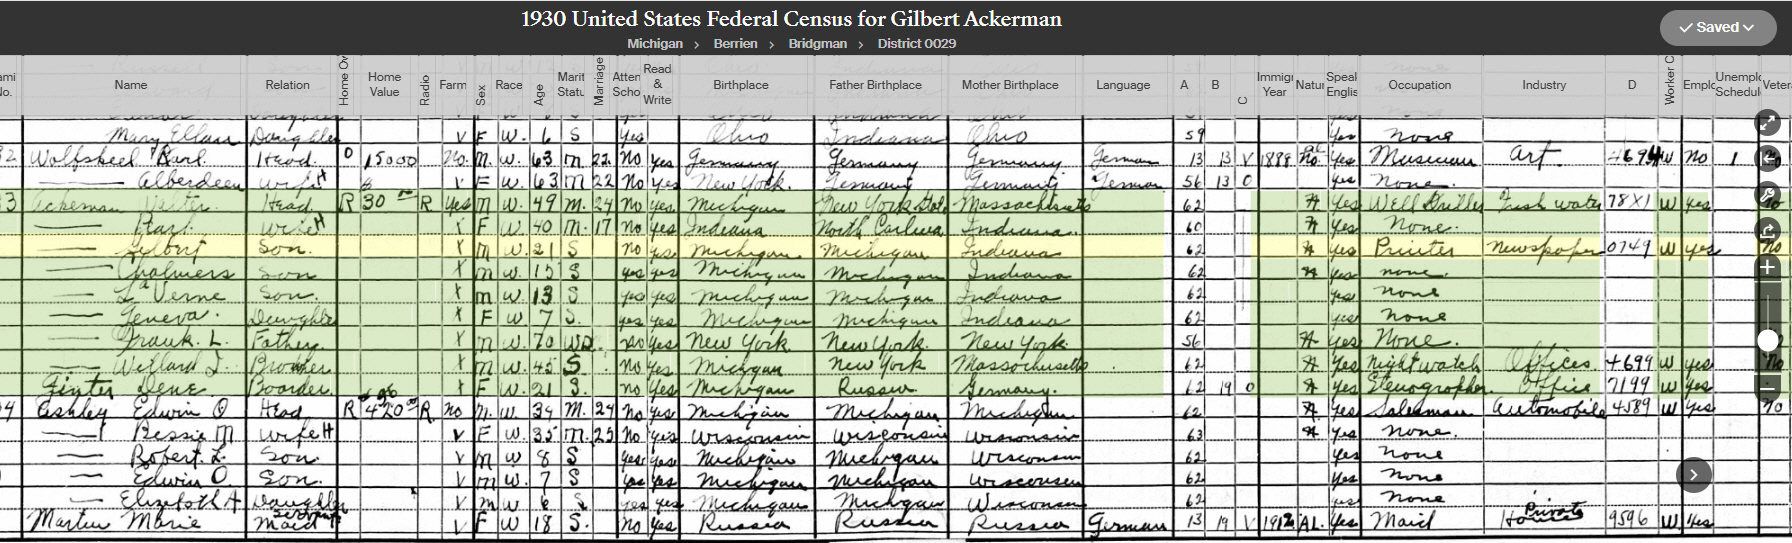 1930 United States Federal Census for Gilbert Ackerman
Saved
Michigan > Berrien > Bridgman > District 0029
ami No. Name Relation Home Ov Home Value Radio Farm Sex Race Age Marit Statu Marriage Atten Scho Read & Write Birthplace Father Birthplace Mother Birthplace Language A B C Immigr Year Natur Speal Englis Occupation Industry D Worker C Emplo Unemplo Schedule Veter
Mary Ellen Daughter V F W. 6 S Yes Ohio Indiana Ohio 59 Yes none
2 Wolfskeel Karl Head O 15000 No. M. W. 63 M 22 No Yes Germany Germany Germany German 13 13 V 1888 Yes Musician Art W No 1
Alberdeen Wife H V F W. 63 M 22 No Yes New York Germany Germany German 56 13 0 yes none.
3 Ackerman Walter Head R 30 R Yes M W. 49 M. 24 No Yes Michigan New York Massachusetts 62 Yes Well Driller Fresh water 78X1 W Yes
Pearl Wife H X F W. 40 M. 17 no Yes Indiana North Carolina Indiana. 60 Yes None.
Gilbert Son. X M W. 21 S No yes Michigan Michigan Indiana 62 Yes Printer Newspaper 0749 W Yes No
Chalmers Son X M W. 15 S yes yes Michigan Michigan Indiana 62 Yes none
La Verne Son. X M W. 13 S yes yes Michigan Michigan Indiana 62 yes none
Geneva. Daughter X F W. 7 S. yes yes Michigan Michigan Indiana 62 yes none
Frank. L. Father X M W. 70 WD. No Yes New York New York. New York 56 Yes None.
Willard J. Brother X M W. 45 S No Yes Michigan New York Massachusetts 62 Yes Night watch Offices 4699 W Yes No
Dene Boarder X F W. 21 S. no Yes Michigan Russia Germany. 62 19 0 Yes Stenographer Office 7199 W Yes
4 Ashley Edwin O Head R 420 R No M. W. 39 M. 24 No Yes Michigan Michigan Michigan 62 Yes Salesman Automobile 4589 W Yes No
Bessie M Wife H V F W. 35 M. 25 No Yes Wisconsin Wisconsin Wisconsin 63 Yes None.
Robert. L. Son V M W 8 S Yes Yes Michigan Michigan Wisconsin 62 Yes None
Edwin O. Son. V M W. 7 S Yes Yes Michigan Michigan Wisconsin 62 Yes None
Elizabeth A Daughter V M W 6 S yes yes Michigan Michigan Wisconsin 62 yes None
Martin Marie Maid Servant V F W 18 S. No Yes Russia Russia Russia German 13 19 V 1912 AL. Yes Maid Private House 9596 W. Yes